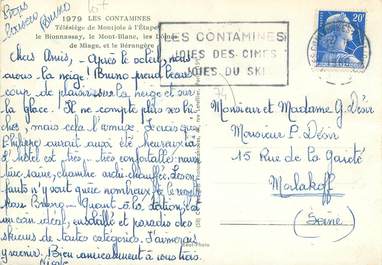 1979 LES CONTAMINES
Télésiège de Montjoie à l'Étape
le Bionnassay, le Mont-Blanc, les Dômes
de Miage, et le Bérangère
Bons
Baisers Bruno
LES CONTAMINES
JOIES DES CIMES
JOIES DU SKI
20F
Chers Amis, - Après le soleil, nous
avons la neige! Bruno prend beaucoup
coup de plaisir sur la neige et sur
la glace! Il ne compte plus ses
mais cela l'amuse. Je crois que
Philippe aurait aussi été heureux ici
L'hôtel est très, très confortable: nourri-
ture saine, chambre archi-chauffée. Les en-
fants n'y sont guère nombreux
pour Bruno. Quant à la station, c'est
un coin idéal, ensoleillé et paradis des
skieurs de toutes catégories. J'aimerais
y revenir. Bien amicalement à vous trois.
Monsieur et Madame G. Désir
Monsieur P. Désir
15 Rue de la Gaieté
Malakoff
(Seine)